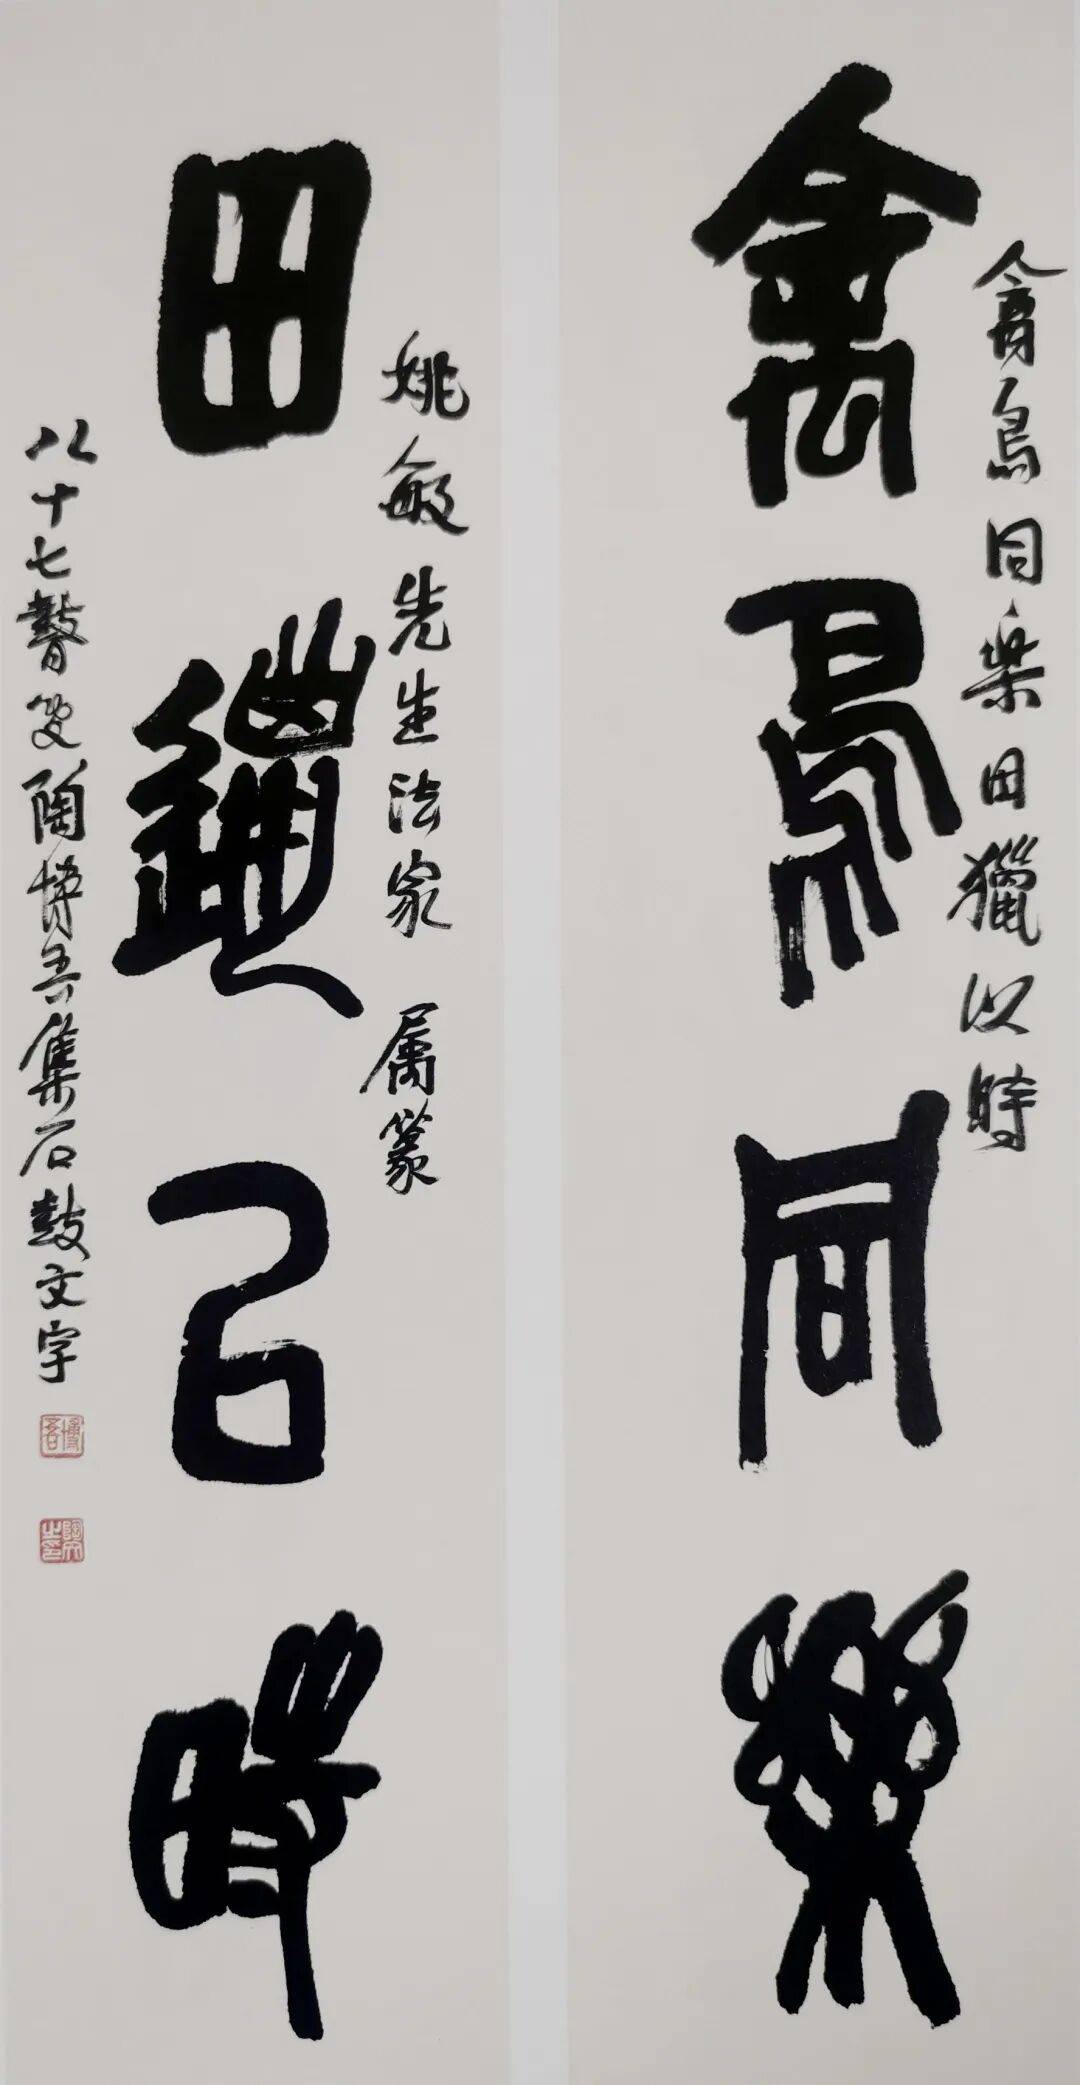 禽鳥同樂田獵以時
禽鳥同樂
姚敏先生法家 属篆
田獵以時
八十七瞽叟陶博吾集石鼓文字
博吾
陶文之印